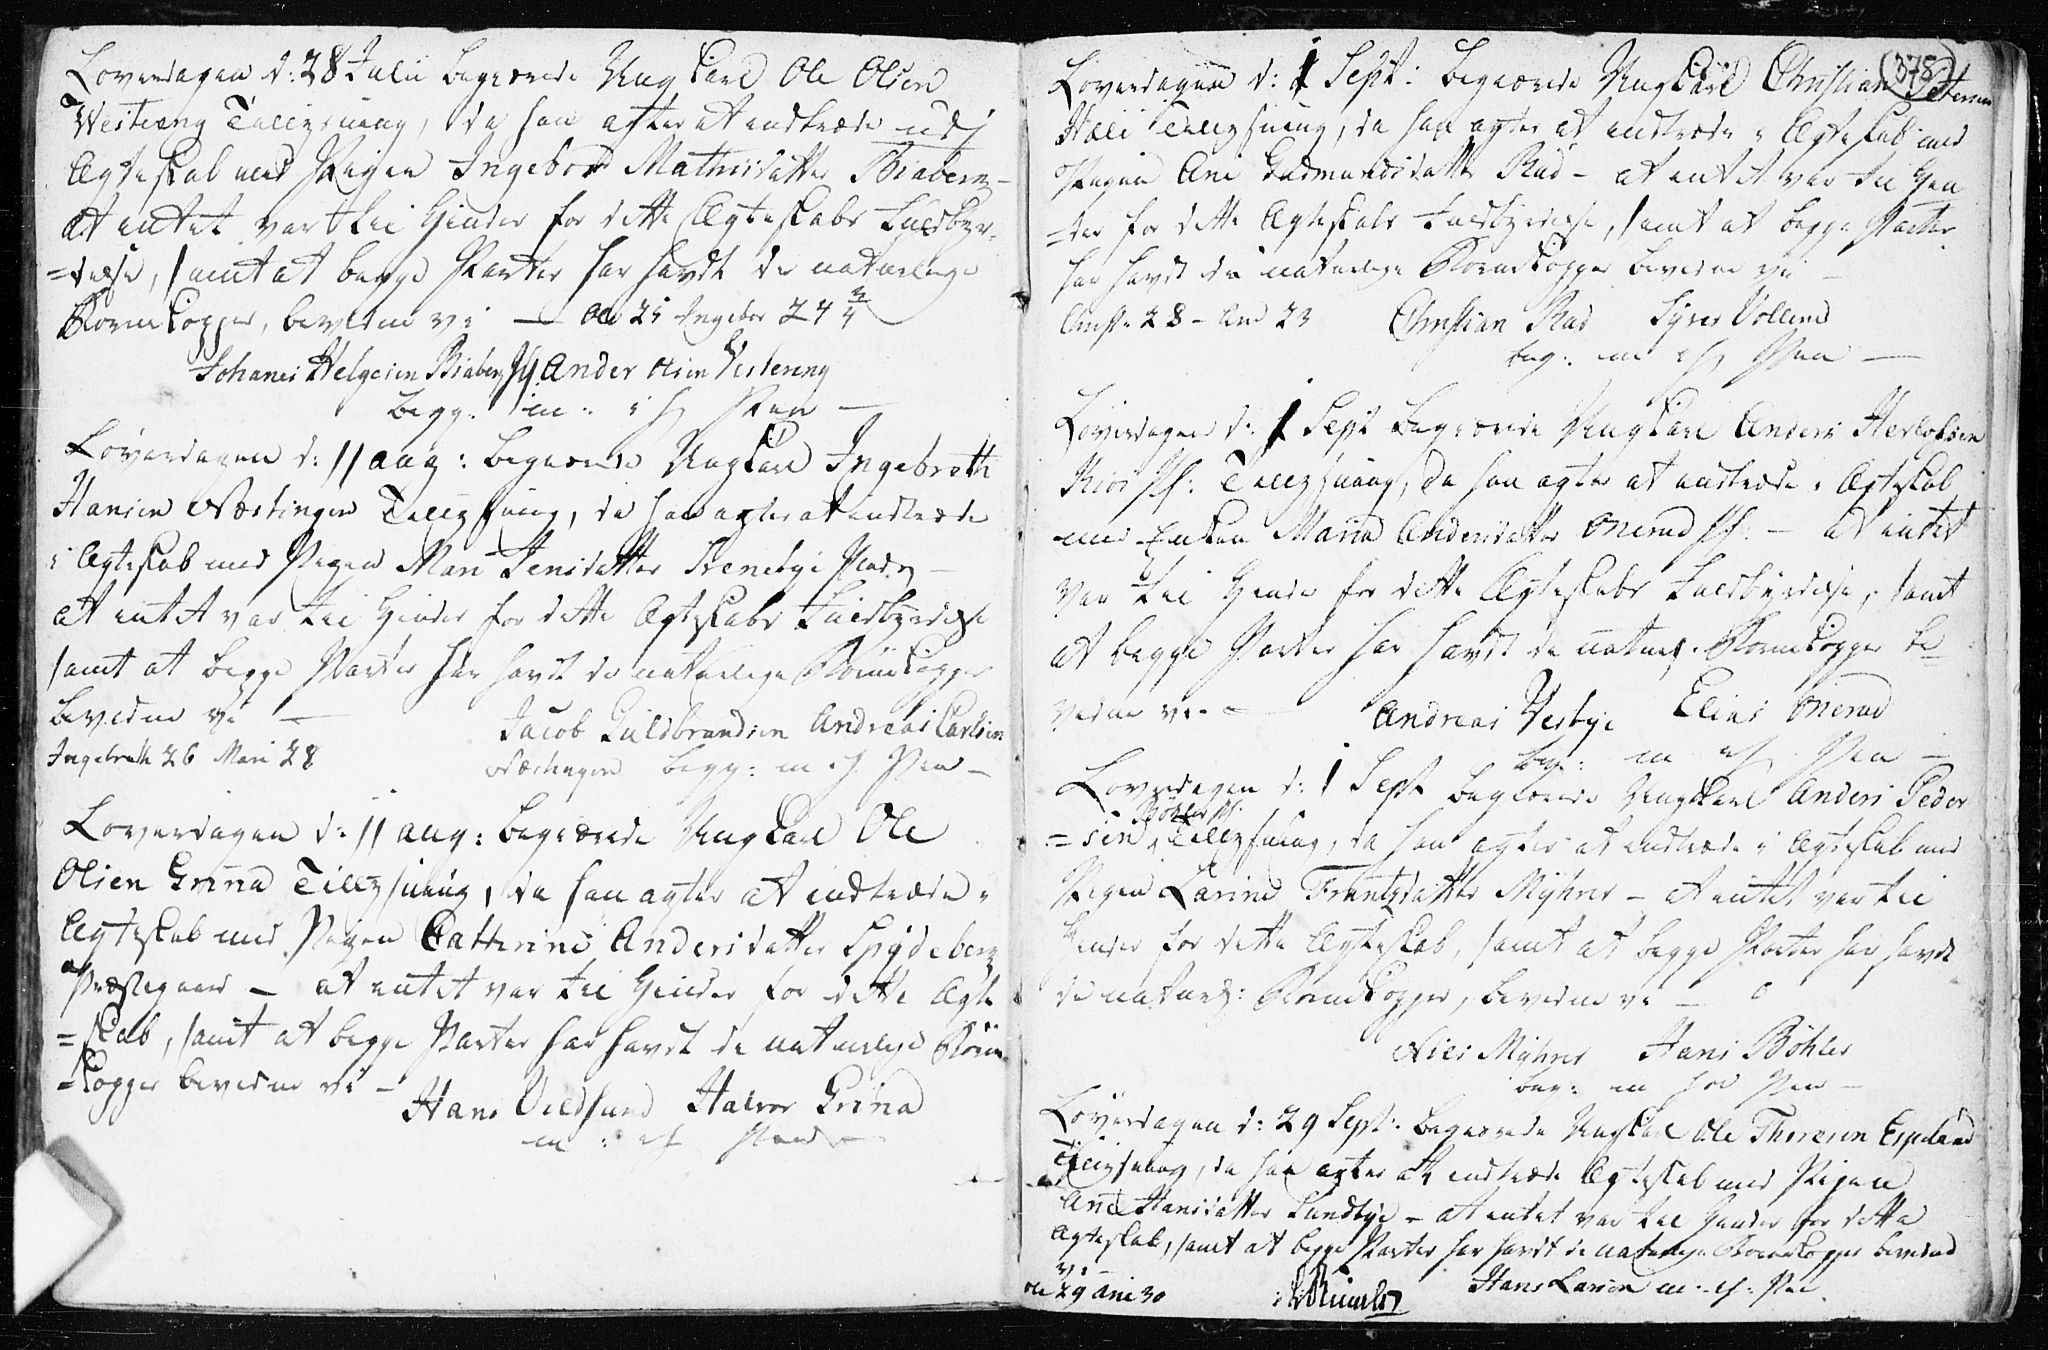 Loverdagen d: 28 Julii begiærede Ung Karl Ole Olsen
Westeeng Tillysning, da han agter at indtræde udj
Ægteskab med Pigen Ingebor Mathisdatter Biaberg –
at intet var til Hinder for dette Ægteskabs Fuldbyr-
=delse, samt at begge Parter har havdt de naturlige
Børnekopper, bevidne vi — Ole 25 Ingebor 24 3/4
Johanes Helgesen Biaberg Anders Olsen Vesteeng
begg: m: i h Pen —
Løverdagen d: 11 aug: begiærede Ungkarl Ingebreth
Hansen Næstingen Tillysning, da han agter at indtræde
i Ægteskab med Pigen Mari Jensdatter
at intet var til Hinder for dette Ægteskabs Fuldbyrdelse
samt at begge Parter har havdt de naturlige Børnekopper
bevidne vi —
Jacob Guldbrandsen Andreas Carlsen
Ingebreth 26 Mari 28
Næstingen begg: m. i h. Pen —
Loverdagen d: 11 aug: begiærede Ungkarl Ole
Olsen Grina Tillysning, da han agter at indtræde i
Ægteskab med Pigen Catherine Andersdatter Spydeberg
Præstegaard – at intet var til Hinder for dette Ægte
=skab, samt at begge Parter har havdt de naturlige Børne
=kopper bevidne vi –
Hans Halvor Grina
m: i h Pen —
378
Loverdagen d: 1 Sept: begiærede Ungkarl Christian Petersen
Tillysning, da han agter at indtræde i Ægteskab med
Pigen Ane Gudmundsdatter Rud – at intet var til Hin
=der for dette Ægteskabs Fuldbyrdelse, samt at begge Parter
har havdt de naturlige Børnekopper bevidne vi –
Christ: 28 – Ane 23 Christian Rud Syver Vollene
beg: m i h Pen —
Løverdagen d: 1 Sept begiærede Ungkarl Anders
Tillysning, da han agter at indtræde i Ægteskab
med Enken Maria Andersdatter Onerud – at intet
var til Hinder for dette Ægteskabs Fuldbyrdelse, samt
at begge Parter har havdt de naturl. Børnekopper be-
vidne vi – Andreas Vesbye Elias Onerud
beg: m i h Pen —
Loverdagen d: 1 Sept begiærede Ungkarl Anders Peder
Bøhler
=sen, Tillysning, da han agter at indtræde i Ægteskab med
Pigen Karine Frantzdatter Myhrer – at intet var til
Hinder for dette Ægteskab, samt at begge Parter har havdt
de naturl: Børnekopper, bevidne vi –
Niels Myhrer Hans Bøhler
beg: m hol Pen —
Loverdagen d: 29 Sept: begiærede Ungkarl Ole Thoresen Espeland
Tillysning, da han agter at indtræde Ægteskab med Pigen
Ane Hansdatter Sundbye – at intet var til Hinder for dette
Ægteskab, samt at begge Parter har havdt de naturlige Børnekopper bevidne
vi –
Ole 29 Ane 30
Hans Larsen m. i h: Pen.